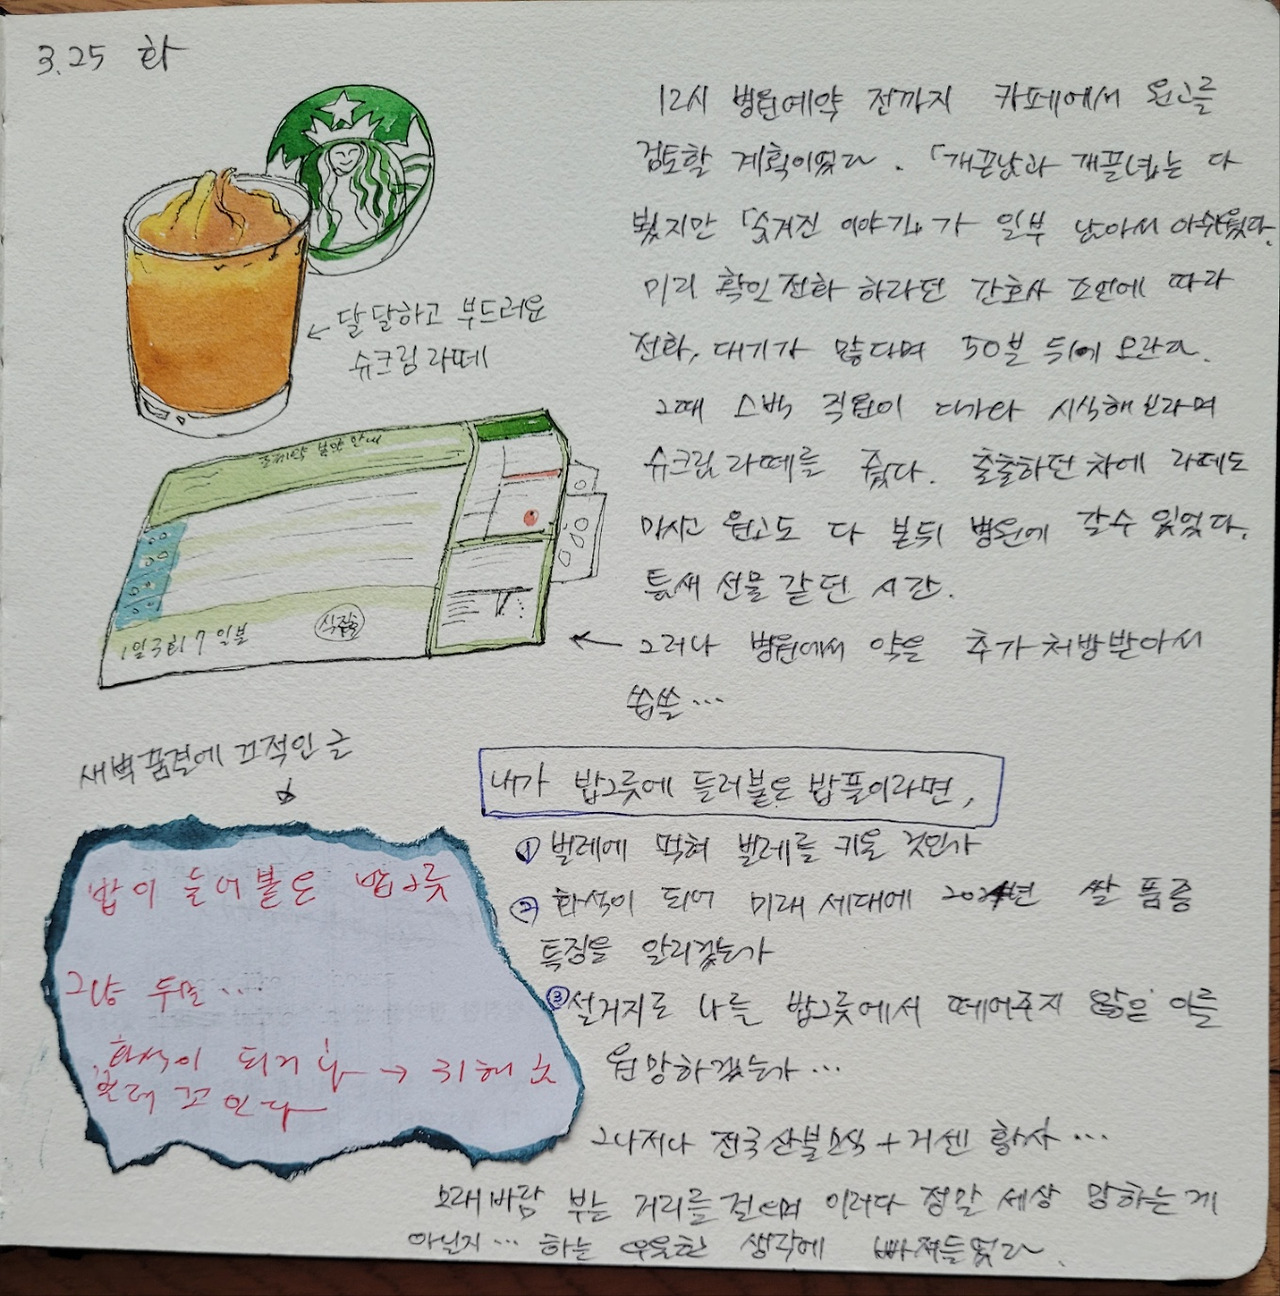 3.25 화
12시 병원예약 전까지 카페에서 원고를
검토할 계획이었다. 「개끈낫과 개끌녑」는 다
봤지만 「숨겨진 이야기」가 일부 남아서 아쉬웠다.
미리 확인전화 하라던 간호사 조언에 따라
전화, 대기가 많다며 50분 뒤에 오란다.
그때 스벅 직원이 다가와 시식해보라며
슈크림 라떼를 줬다. 출출하던 차에 라떼도
마시고 원고도 다 본 뒤 병원에 갈 수 있었다.
틈새 선물 같던 시간.
← 달달하고 부드러운
슈크림 라떼
조제약 복약안내
1일 3회 7일분
식전
← 그러나 병원에서 약을 추가 처방받아서
씁쓸...
새벽 품결에 끄적인 글
밥이 눌어붙은 밥그릇
그냥 두면...
화석이 되거나
벌레 꼬인다
내가 밥그릇에 들러붙은 밥풀이라면,
① 벌레에 먹혀 벌레를 키울 것인가
② 화석이 되어 미래 세대에 년 쌀 품종
특징을 알리겠는가
③ 설거지로 나를 밥그릇에서 떼어주지 않은 이를
원망하겠는가...
그나저나 전국 산불소식 + 거센 황사...
모래바람 부는 거리를 걸으며 이러다 정말 세상 망하는 게
아닌지... 하는 우울한 생각에 빠져들었다.